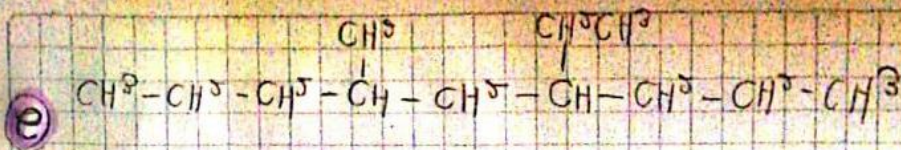 CH³ CH²CH³
e CH³-CH²-CH²-CH-CH²-CH-CH²-CH²-CH³